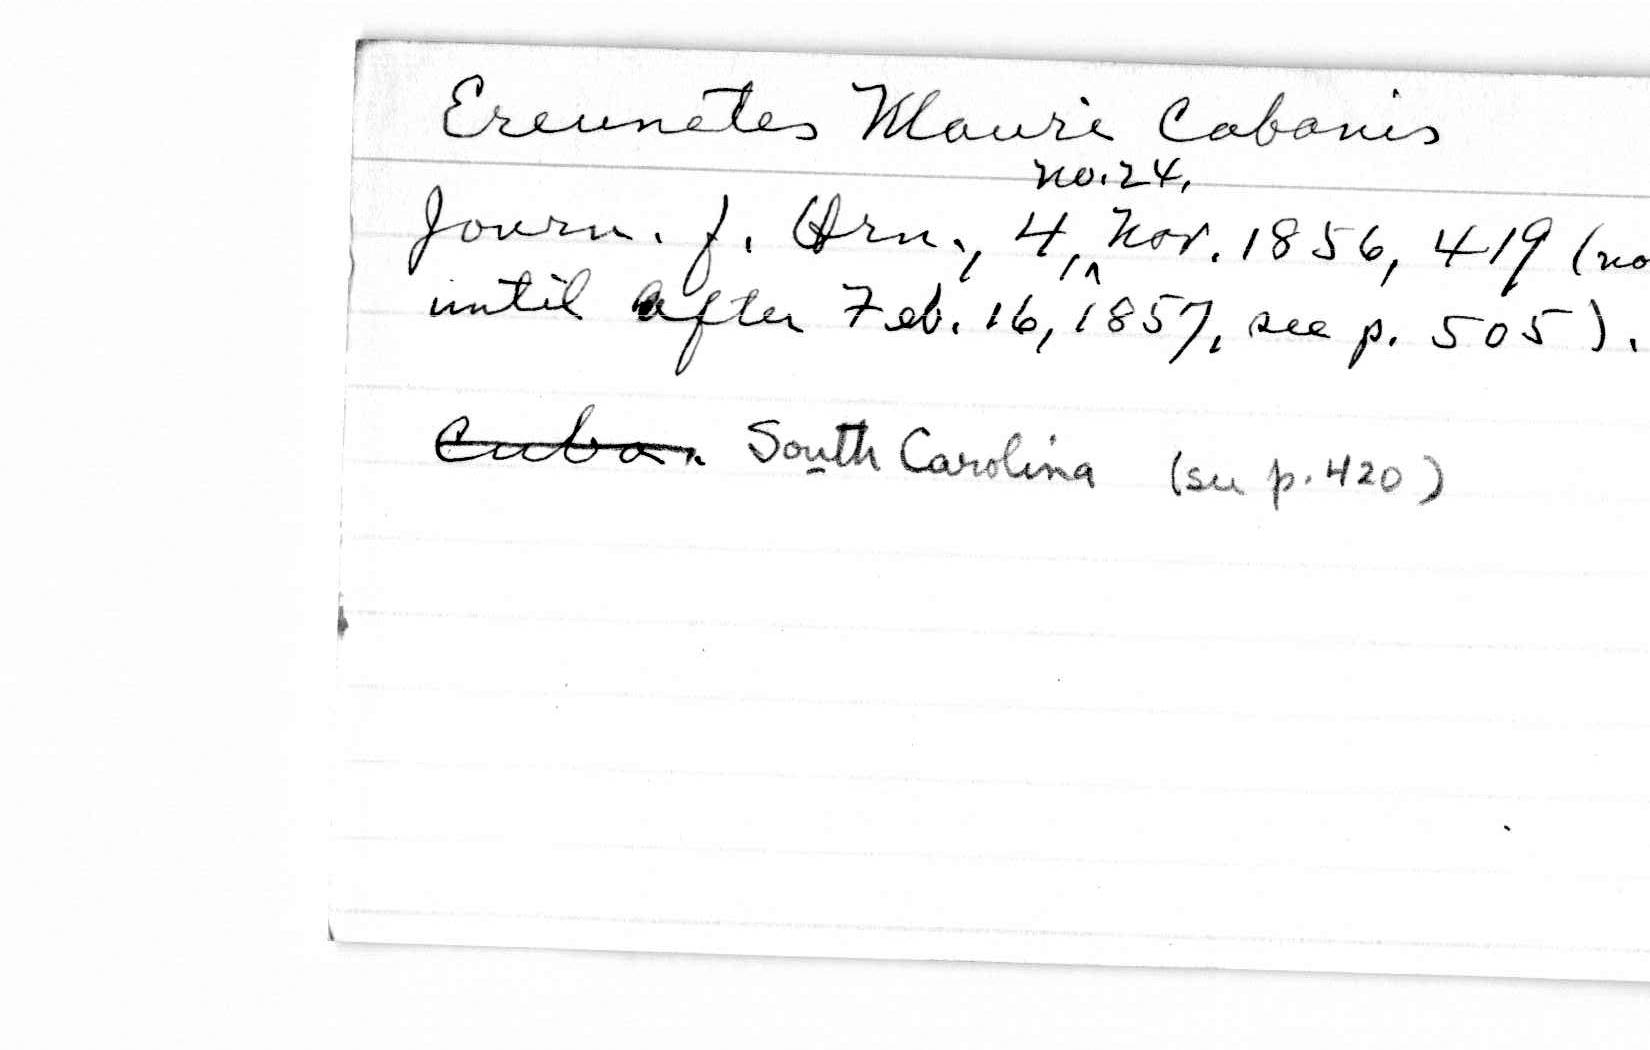 Ereunetes Mauri Cabanis
no. 24,
Journ. f. Orn., 4, Nov. 1856, 419 (no
until after Feb. 16, 1857, see p. 505).
Cuba. South Carolina (see p. 420)